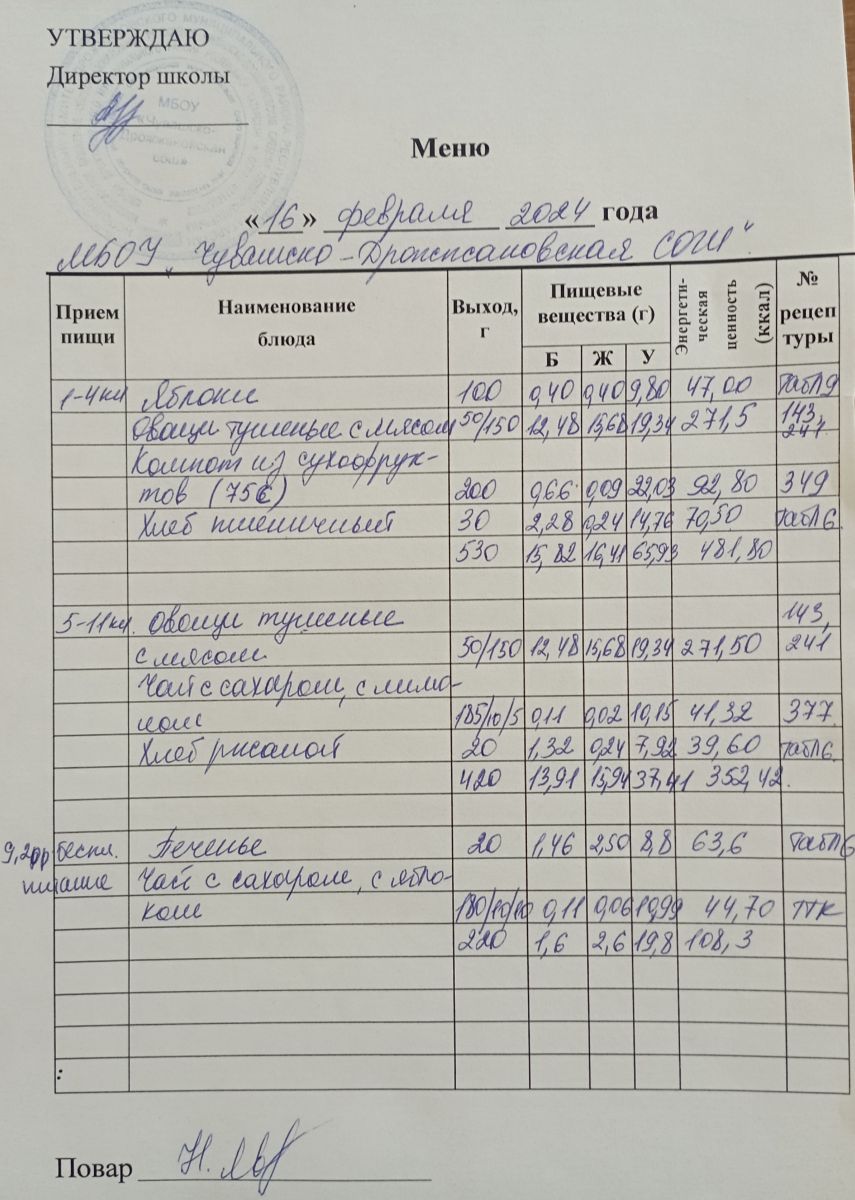 УТВЕРЖДАЮ
Директор школы
МБОУ
«Чувашско-
Дрожжановская
СОШ»
Меню
«16» февраля 2024 года
МБОУ „Чувашско-Дрожжановская СОШ".
Прием пищи Наименование блюда Выход, г Пищевые вещества (г) Б Ж У Энергетическая ценность (ккал) № рецептуры
1-4кл Яблоки 100 0,40 0,40 9,80 47,00 табл9
Овощи тушеные с мясом 50/150 12,48 15,68 19,34 271,5 143, 241
Компот из сухофрук-
тов (75С) 200 0,66 0,09 22,03 92,80 349
Хлеб пшеничный 30 2,28 0,24 14,76 70,50 табл6.
530 15,82 16,41 65,93 481,80
5-11кл. Овощи тушеные 143,
с мясом 50/150 12,48 15,68 19,34 271,50 241
Чай с сахаром, с лимо-
ном 185/10/5 0,11 0,02 10,15 41,32 377
Хлеб ржаной 20 1,32 0,24 7,92 39,60 табл6.
420 13,91 15,94 37,41 352,42.
беспл. Печенье 20 1,46 2,50 8,8 63,6 табл6
питание Чай с сахаром, с ябло-
ком 180/10/10 0,11 0,06 10,99 44,70 ТТК
220 1,6 2,6 19,8 108,3
:
Повар Н.